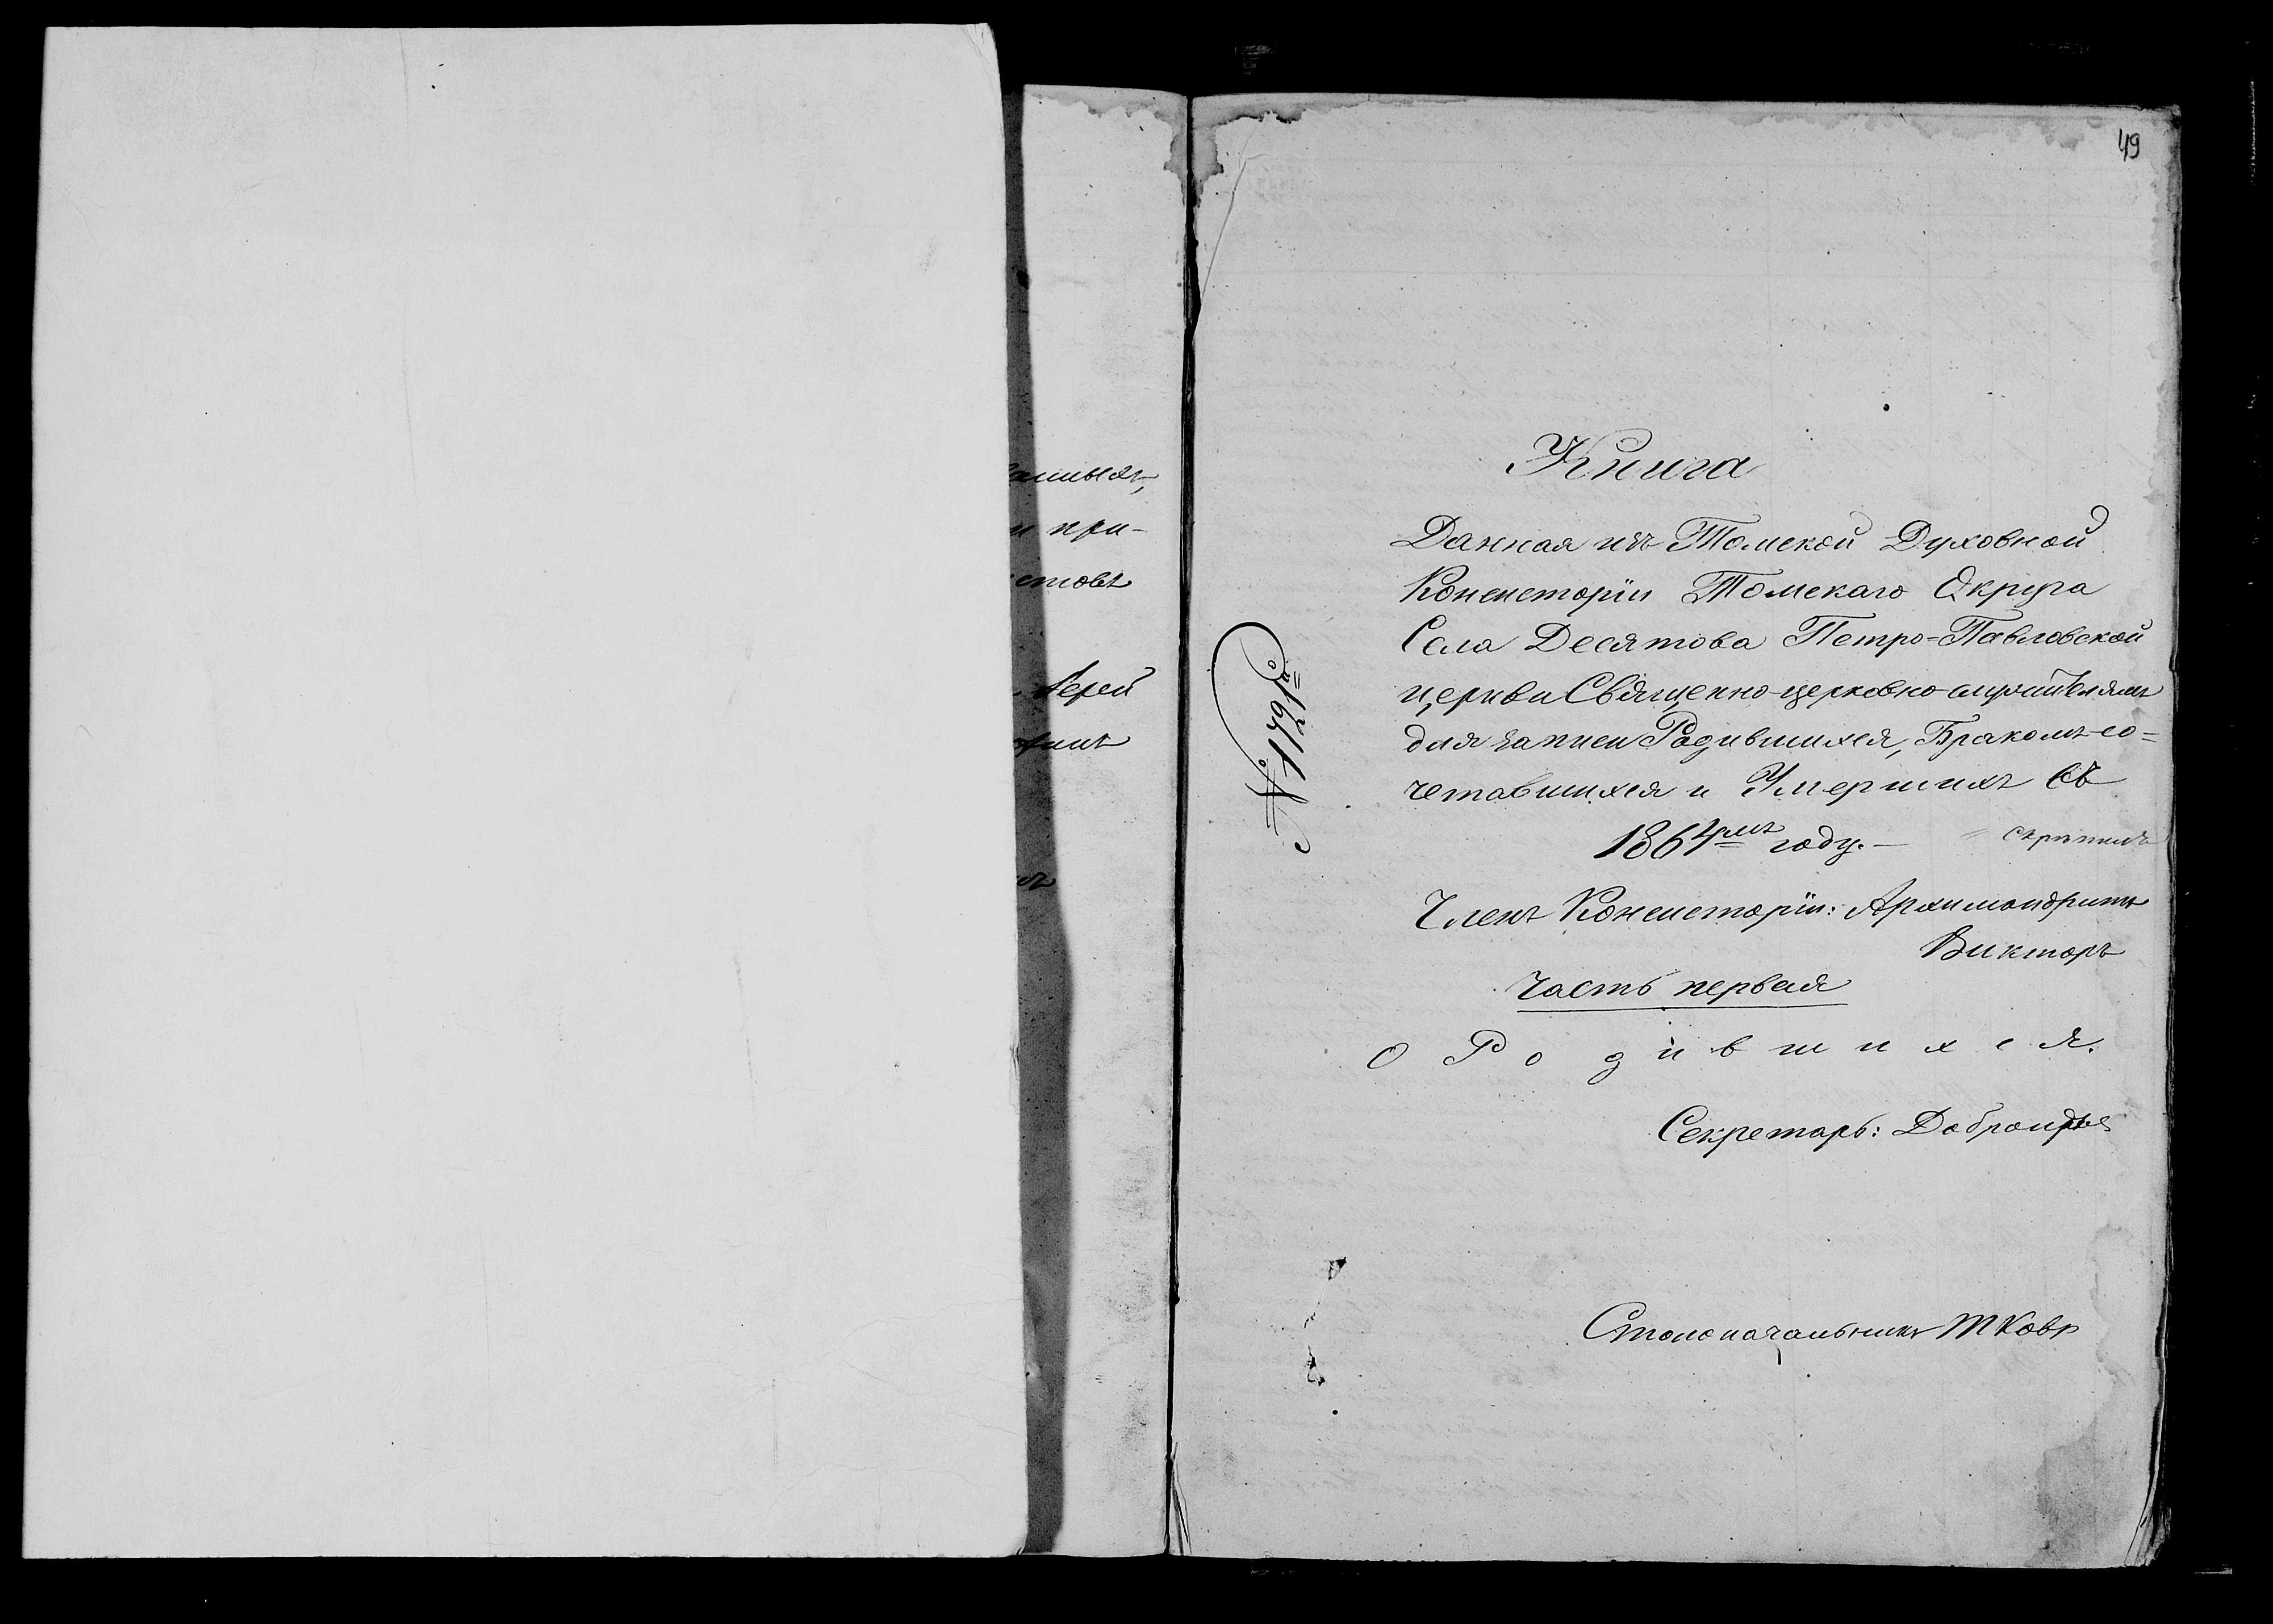 49
Книга
Данная изъ Томской Духовной
Консисторіи Томскаго Округа
Села Десятова Петро-Павловской
церкви Священно-церковно-служителямъ
для записи Родившихся, Бракомъ-со=
четавшихся и Умершихъ въ
1864мъ году.-
скрѣпилъ
Членъ Консисторіи: Архимандритъ
Викторъ
Часть первая
О Родившихся.
Секретарь:
Столоначальникъ
и при-
Іерей